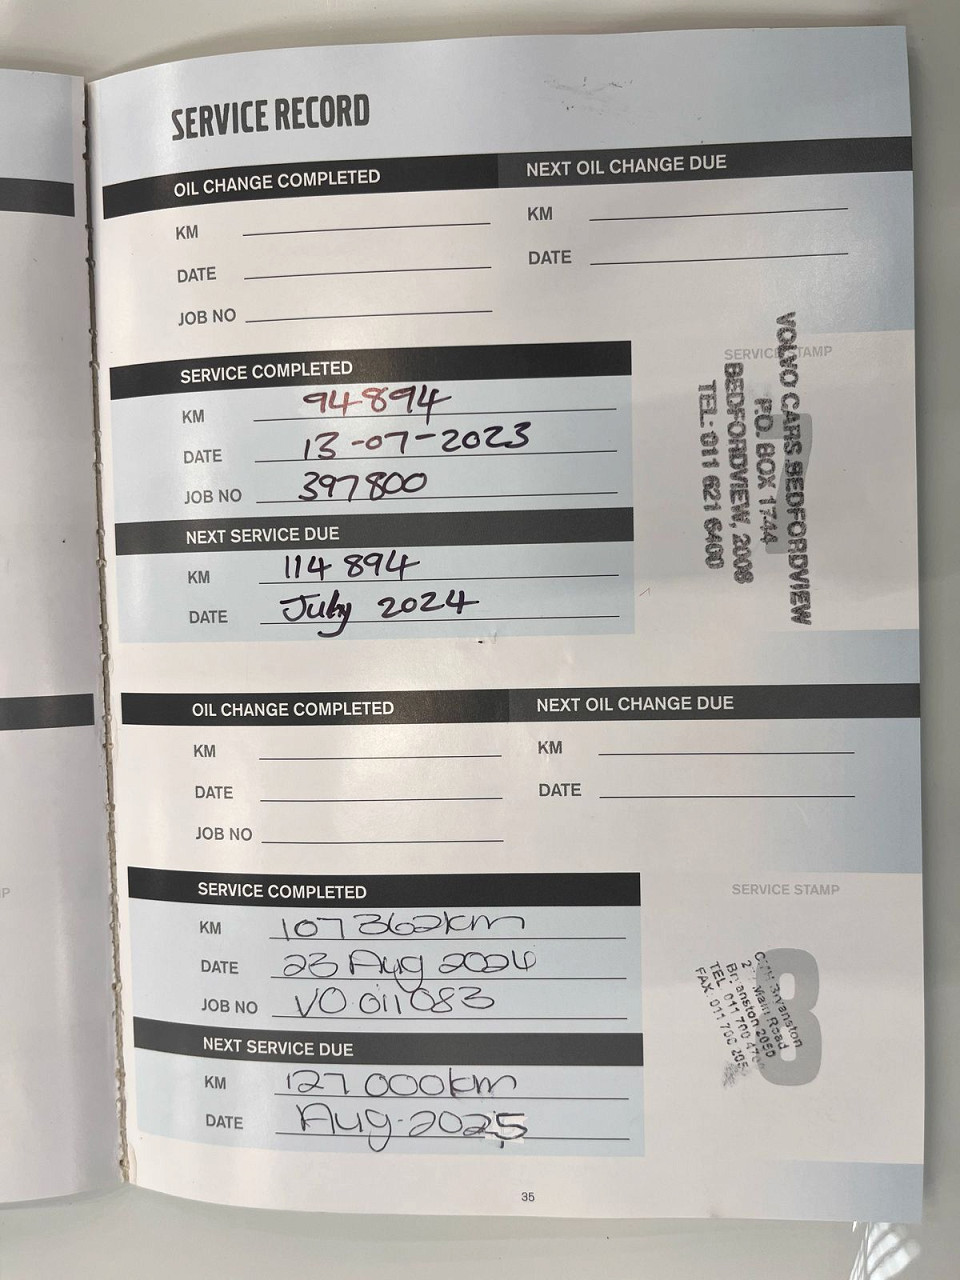 SERVICE RECORD
OIL CHANGE COMPLETED
KM
DATE
JOB NO
NEXT OIL CHANGE DUE
KM
DATE
SERVICE COMPLETED
KM 94894
DATE 13-07-2023
JOB NO 397800
NEXT SERVICE DUE
KM 114 894
DATE July 2024
SERVICE STAMP
7
VOLVO CARS BEDFORDVIEW
P.O. BOX 1744
BEDFORDVIEW, 2008
TEL: 011 621 6400
OIL CHANGE COMPLETED
KM
DATE
JOB NO
NEXT OIL CHANGE DUE
KM
DATE
SERVICE COMPLETED
KM 107 362km
DATE 23 Aug 2024
JOB NO VO 011083
NEXT SERVICE DUE
KM 127 000km
DATE Aug-2025
SERVICE STAMP
8
Bryanston
Main Road
Bryanston 2050
TEL 011 700
FAX 011 700
35